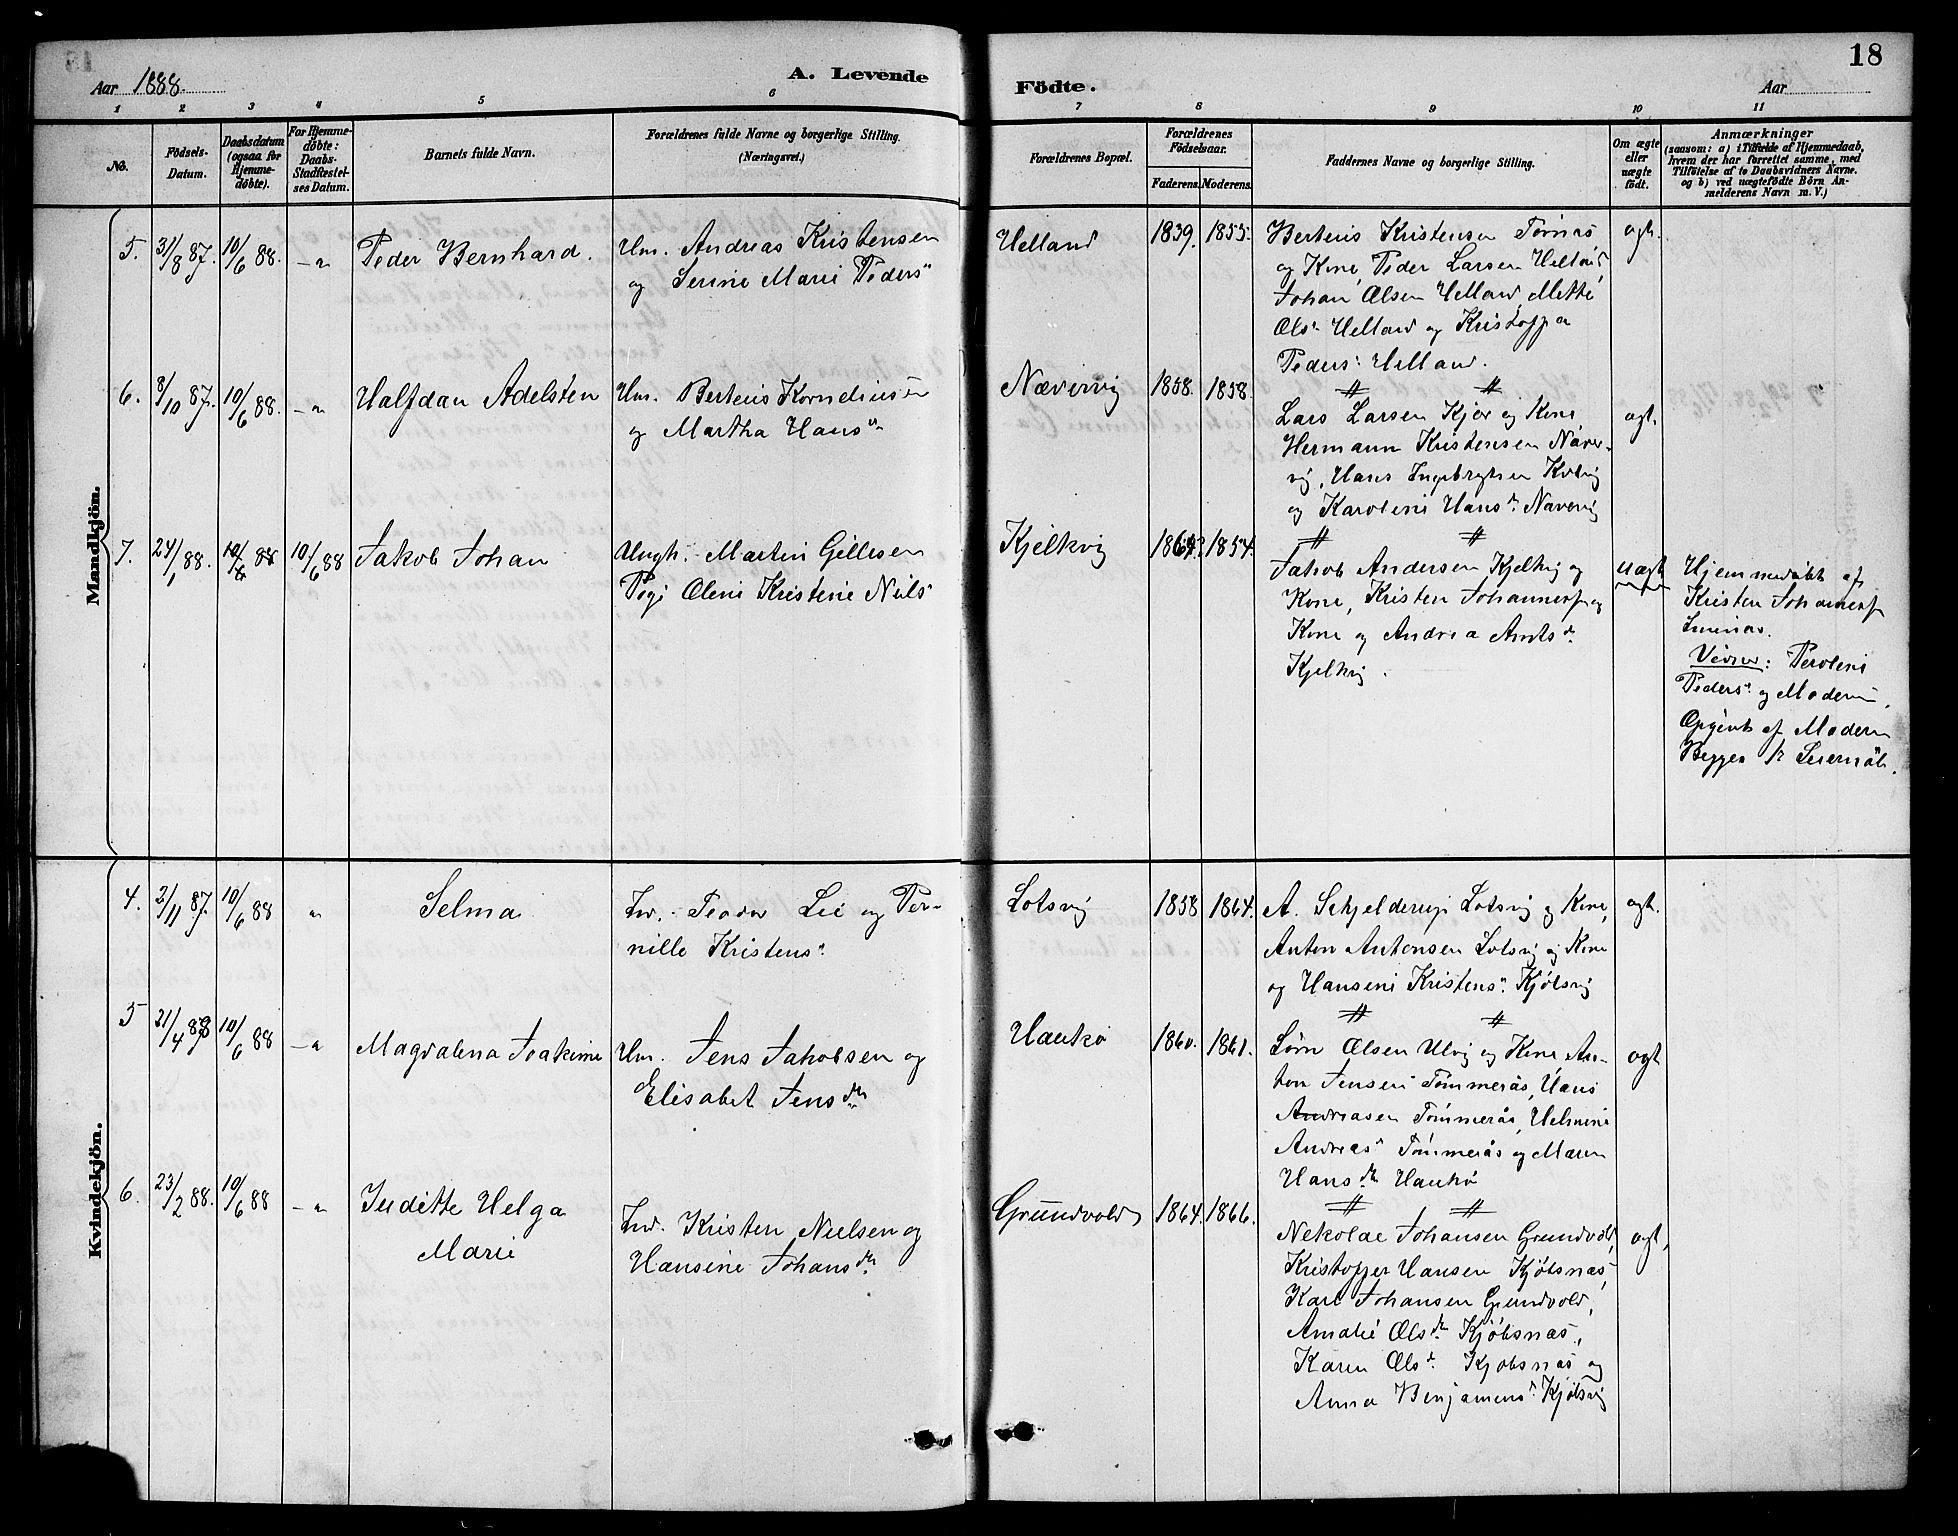 18
Aar 1888.
A. Levende
Födte.
Aar
1 2 3 4 5 6 7 8 9 10 11
No.
Födsels-Datum.
Daabsdatum (ogsaa for Hjemmedöbte).
For Hjemmedöbte: Daabs-Stadfæstelses Datum.
Barnets fulde Navn.
Forældrenes fulde Navne og borgerlige Stilling. (Næringsvei.)
Forældrenes Bopæl.
Forældrenes Födselsaar.
Faderens. Moderens.
Faddernes Navne og borgerlige Stilling.
Om ægte eller uægte födt.
Anmærkninger
(saasom: a) i Tilfælde af Hjemmedaab, hvem der har forrettet samme, med Tilföielse af to Daabsvidners Navne. og b) ved uægtefödte Börn Anmelderens Navn m. V.)
Mandkjön.
5. 31/8 87. 10/6 88. Peder Bernhard. Um. Andreas Kristensen
og Serine Marie Peders"
Helland 1839. 1855.
Berteus Kristensen Tørnæs
og Kone, Peder Larsen Helland,
Johan Olsen Helland, Mette
Ols" Helland og Kristoffa
Peders" Helland.
ægt.
6. 8/10 87. 10/6 88. Halfdan Adelsten Um. Berteus Kornelius
og Martha Hans"
Nævervig 1858. 1858.
Lars Larsen Kjær og Kone
Hermann Kristensen Næver-
vig, Hans Ingebrigtsen
og Karoline Hansd. Nævervig
ægt.
7. 24/1 88. 10/6 88 10/6 88 Jakob Johan Ungk. Martin Gillesen
Pige Oline Kristine Nils"
Kjelkvig 1864? 1854.
Jakob Andersen Kjelkvig og
Kone, Kristen Johannesf og
Kone og Andrea Arntsd.
Kjelkvig.
uægt
Hjemmedøbt af
Kristen Johannesf
Vidner: Peroline
Peders" og Moderen.
Opgivet af Moderen
Begges 1ste Leiermål.
Kvindekjön.
4. 2/11 87. 10/6 88 Selma Ind. Teodor Lie og Per-
nille Kristens"
Lotsvig 1858 1864.
A. Schjelderup Lotsvig og Kone,
Anton Antonsen Lotsvig og Kone
og Hansine Kristens" Kjöbsvig
ægt.
5 21/4 88 10/6 88 Magdalena Joakime Um. Jens Jakobsen og
Elisabet Jensdtr
Haukø 1860. 1861.
Sörn Olsen Ulvig og Kone, An-
ton Jensen Tömmerås, Hans
Andreasen Tömmerås, Helmine
Andreas" Tömmerås og Maren
Hansdtr Haukø
ægt
6. 23/2 88. 10/6 88 Juditte Helga
Marie
Ind. Kristen Nielsen og
Hansine Johansdtr
Grundvold 1864. 1866.
Nekolae Johansen Grundvold,
Kristoffer Hansen Kjöbsnæs,
Karl Johansen Grundvold,
Amalie Olsdtr Kjöbsnæs,
Karen Olsd. Kjöbsnæs og
Anna Benjamens" Kjöbsvig
ægt.